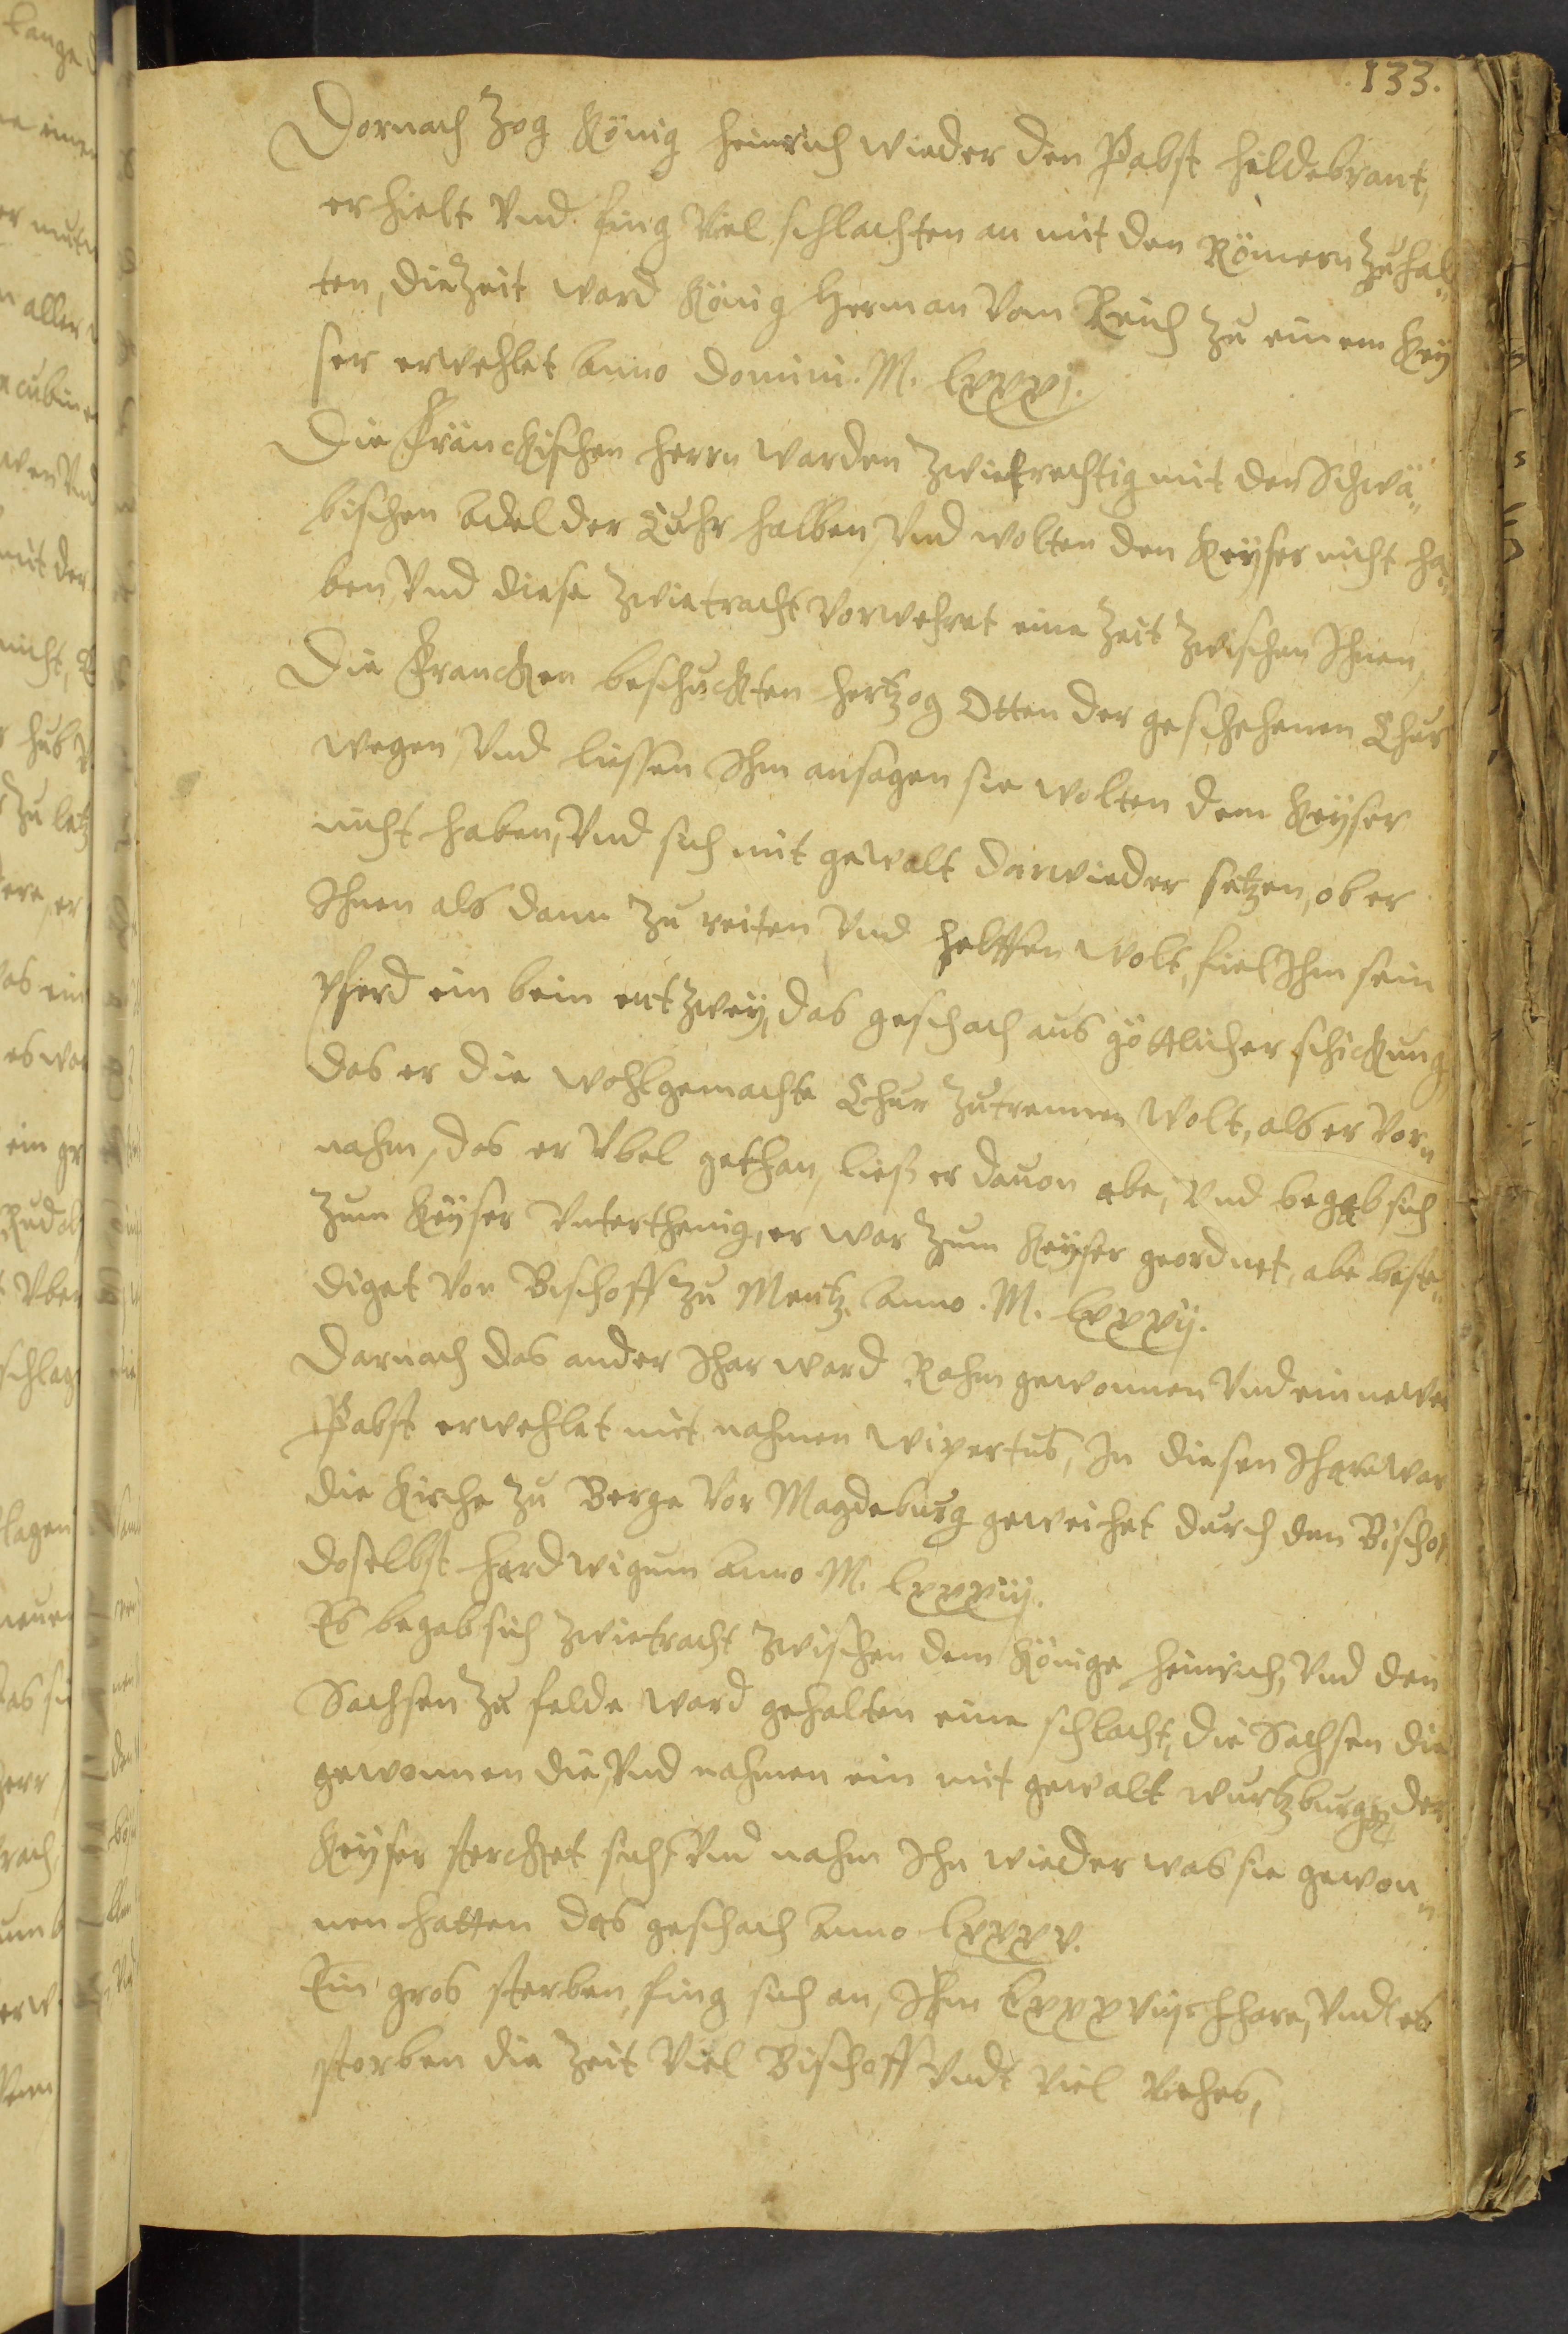 133.
Dornach Zog König Heinrich wieder den Pabst Hildebrant,
er hielt Vnd fing Viel schlachten an mit den Römern Zuhal„
ten, die Zeit ward König Herman Vom Reich Zu einem Key
ser erwehlet Anno Domini. M. lxxxj.
Die Fränckischen Herrn warden Zwietrechtig mit der Schwä„
bischen Adel der Cuhr halben, Vnd wolten den Keyser nicht ha„
ben, Vnd diese Zwietracht Vorwehret eine Zeit Zwischen Ihnen,
Die Francken beschuckten Hertzog Otten der geschehenen Chur
wegen, Vnd liessen Ihm ansagen sie wolten dem Keyser
nicht haben, Vnd sich mit gewalt darwieder setzen, ob er
Ihnen als dann Zu reiten Vnd helffen wolt, fiel Ihm sein
pferd ein bein entzwey, das geschach aus göttlicher schickung
das er die wohlgemachte Chur Zutrennen wolt, als er Vor„
nahm, das er Vbel gethan, ließ er dauon abe, Vnd begab sich
Zum Keyser Vnterthenig, er war Zum Keyser geordnet, abe beste„
diget Von Bischoff Zu Mentz. Anno. M. lxxxij.
Darnach das ander Ihar ward Rohm gewonnen Vnd ein newer
Pabst erwehlet mit nahmen Wipertus, In diesen Ihare war
die Kirche Zu Berge Vor Magdeburg geweihet durch den Bischof
doselbst Hardwigum Anno M. lxxxiij.
Es begab sich Zwietracht Zwischen dem Könige Heinrich, Vnd den
Sachsen Zu felde ward gehalten eine schlacht, die Sachsen die
gewonnen die, Vnd nahmen ein mit gewalt Wurtzburg, der
Keyser stercket sich, Vnd nahm Ihn wieder was sie gewon„
nen hatten das geschach Anno lxxxv.
Ein gros sterben, fing sich an, Ihm lxxxviij Ihare, Vndt es
storben die Zeit Viel Bischoff Vndt Viel Viehes,